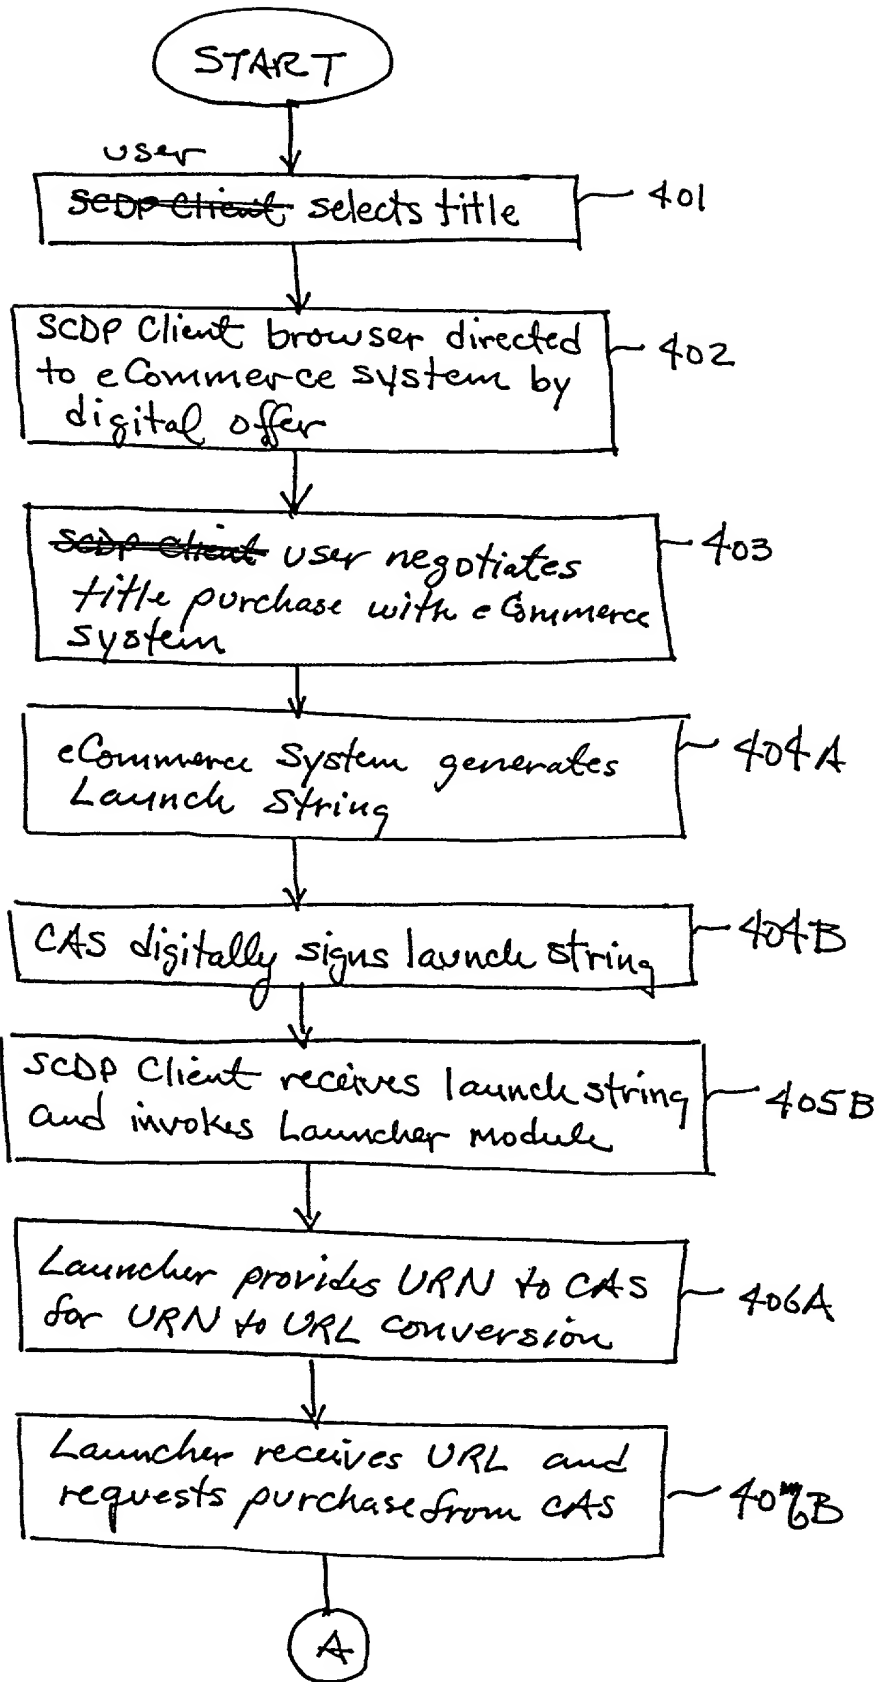 START
user
SCDP Client selects title
401
SCDP Client browser directed
to eCommerce system by
digital offer
402
SCDP Client user negotiates
title purchase with eCommerce
system
403
eCommerce System generates
Launch String
404A
CAS digitally signs launch string
404B
SCDP Client receives launch string
and invokes Launcher module
405B
Launcher provides URN to CAS
for URN to URL conversion
406A
Launcher receives URL and
requests purchase from CAS
406B
A